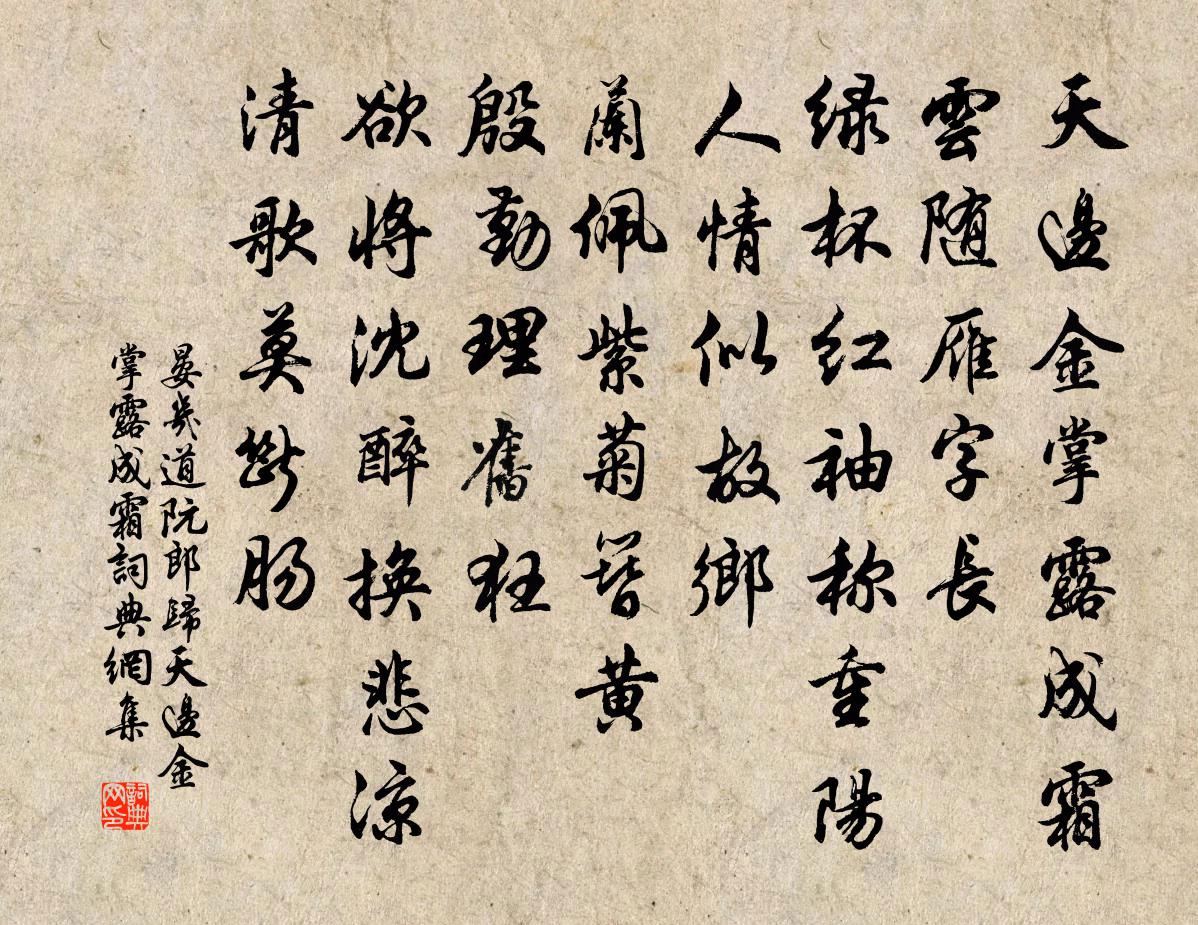 天邊金掌露成霜
雲随雁字長
緑杯红袖称重陽
人情似故鄉
蘭佩紫菊簪黄
殷勤理舊狂
欲将沈醉换悲凉
清歌莫断肠
晏幾道阮郎歸天邊金
掌露成霜詞典網集
詞典
网印